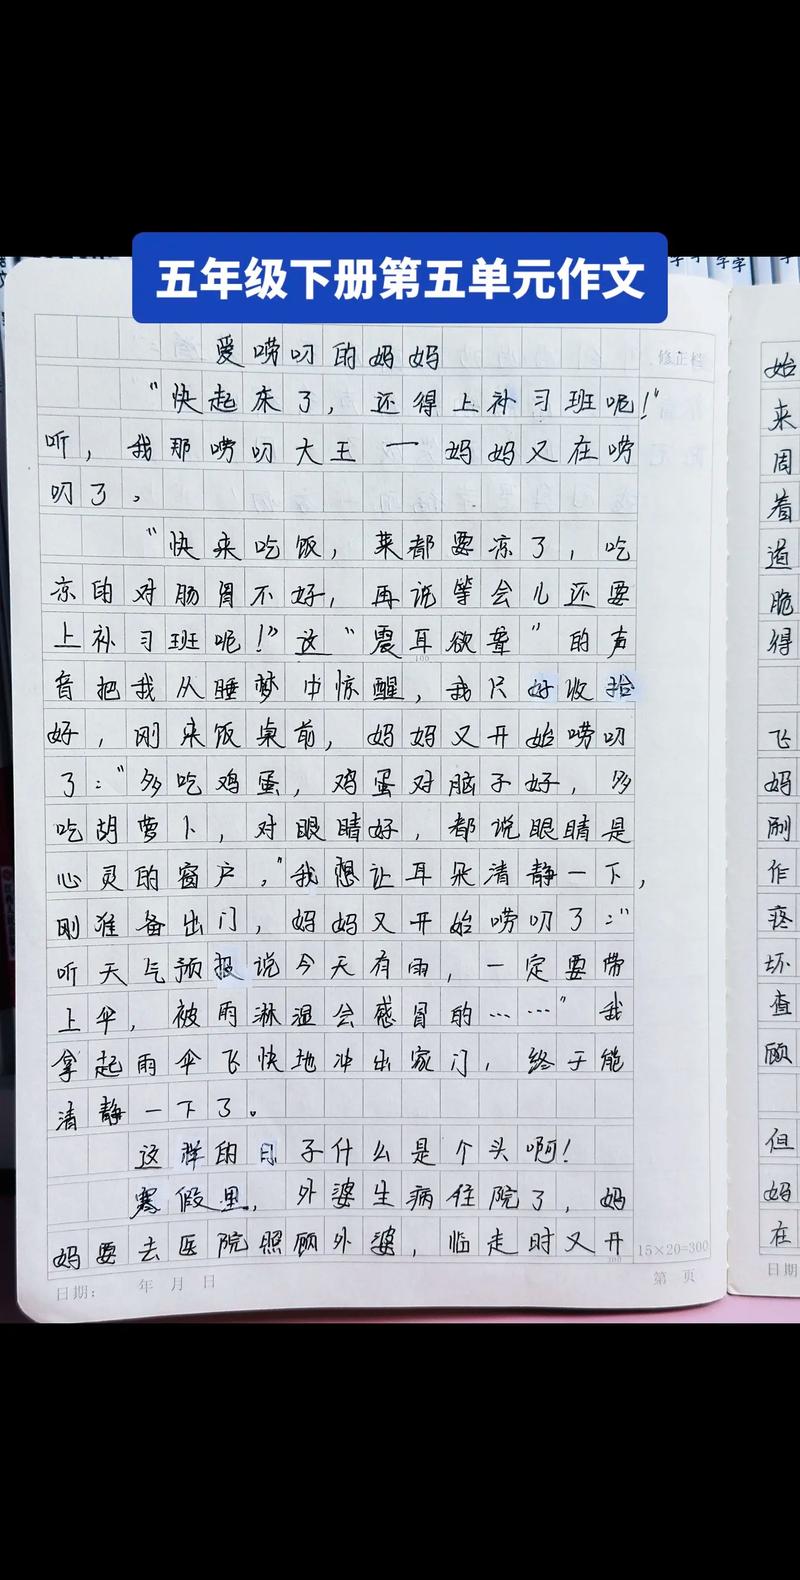 五年级下册第五单元作文
爱唠叨的妈妈
修正栏
"快起床了，还得上补习班呢！"
听，我那唠叨大王一妈妈又在唠
叨了。
"快来吃饭，菜都要凉了，吃
凉的对肠胃不好，再说等会儿还要
上补习班呢！"这"震耳欲聋"的声
音把我从睡梦中惊醒，我只好收拾
好，刚来饭桌前，妈妈又开始唠叨
了："多吃鸡蛋，鸡蛋对脑子好，多
吃胡萝卜，对眼睛好，都说眼睛是
心灵的窗户，"我想让耳朵清静一下，
刚准备出门，妈妈又开始唠叨了："
听天气预报说今天有雨，一定要带
上伞，被雨淋湿会感冒的……"我
拿起雨伞飞快地冲出家门，终于能
清静一下了。
这样的日子什么是个头啊！
寒假里，外婆生病住院了，妈
妈要去医院照顾外婆，临走时又开
15×20=300
日期： 年 月 日
第 页
始
来
周
着
道
脆
得
飞
妈
刷
作
疼
坏
查
顾
但
妈
在
日期